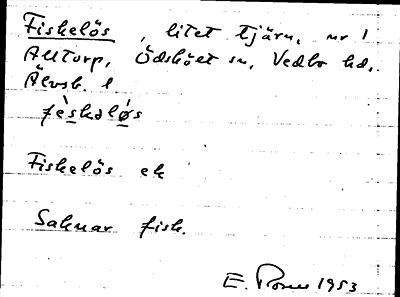 Fiskelös, litet tjärn, nr 1
Alltorp, Ödskölt sn, Vedbo hd,
Älvsb. l
fèskəløs
Fiskelös ek
Saknar fisk.
E. 1953